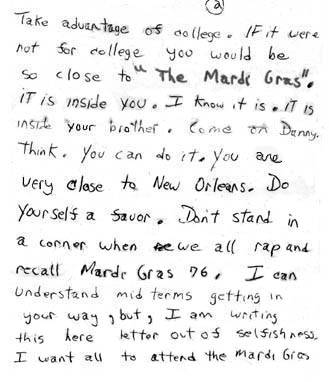 ②
Take advantage of college. IF it were
not for college you would be
so close to "The Mardi Gras".
iT is inside you. I know it is. iT is
inside your brother. Come on Danny.
Think. You can do it. You are
very close to New Orleans. Do
Yourself a favor. Don't stand in
a corner when we all rap and
recall Mardi Gras 76. I can
Understand mid terms getting in
your way, but, I am writing
this here letter out of selfishness.
I want all to attend the Mardi Gras